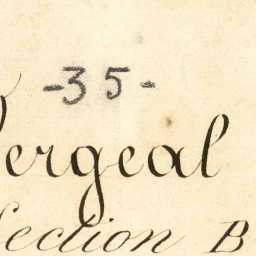 -35-
Vergeal
Section B